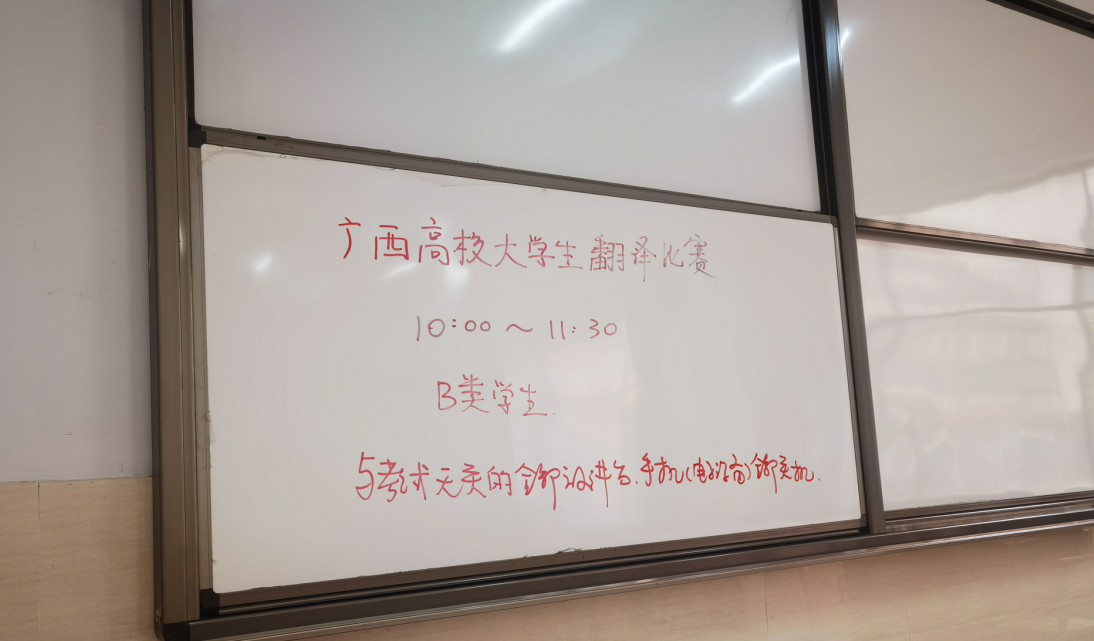 广西高校大学生翻译比赛
10:00~11:30
B类学生.
与考试无关的全部放讲台.手机(电子设备)全部关机.